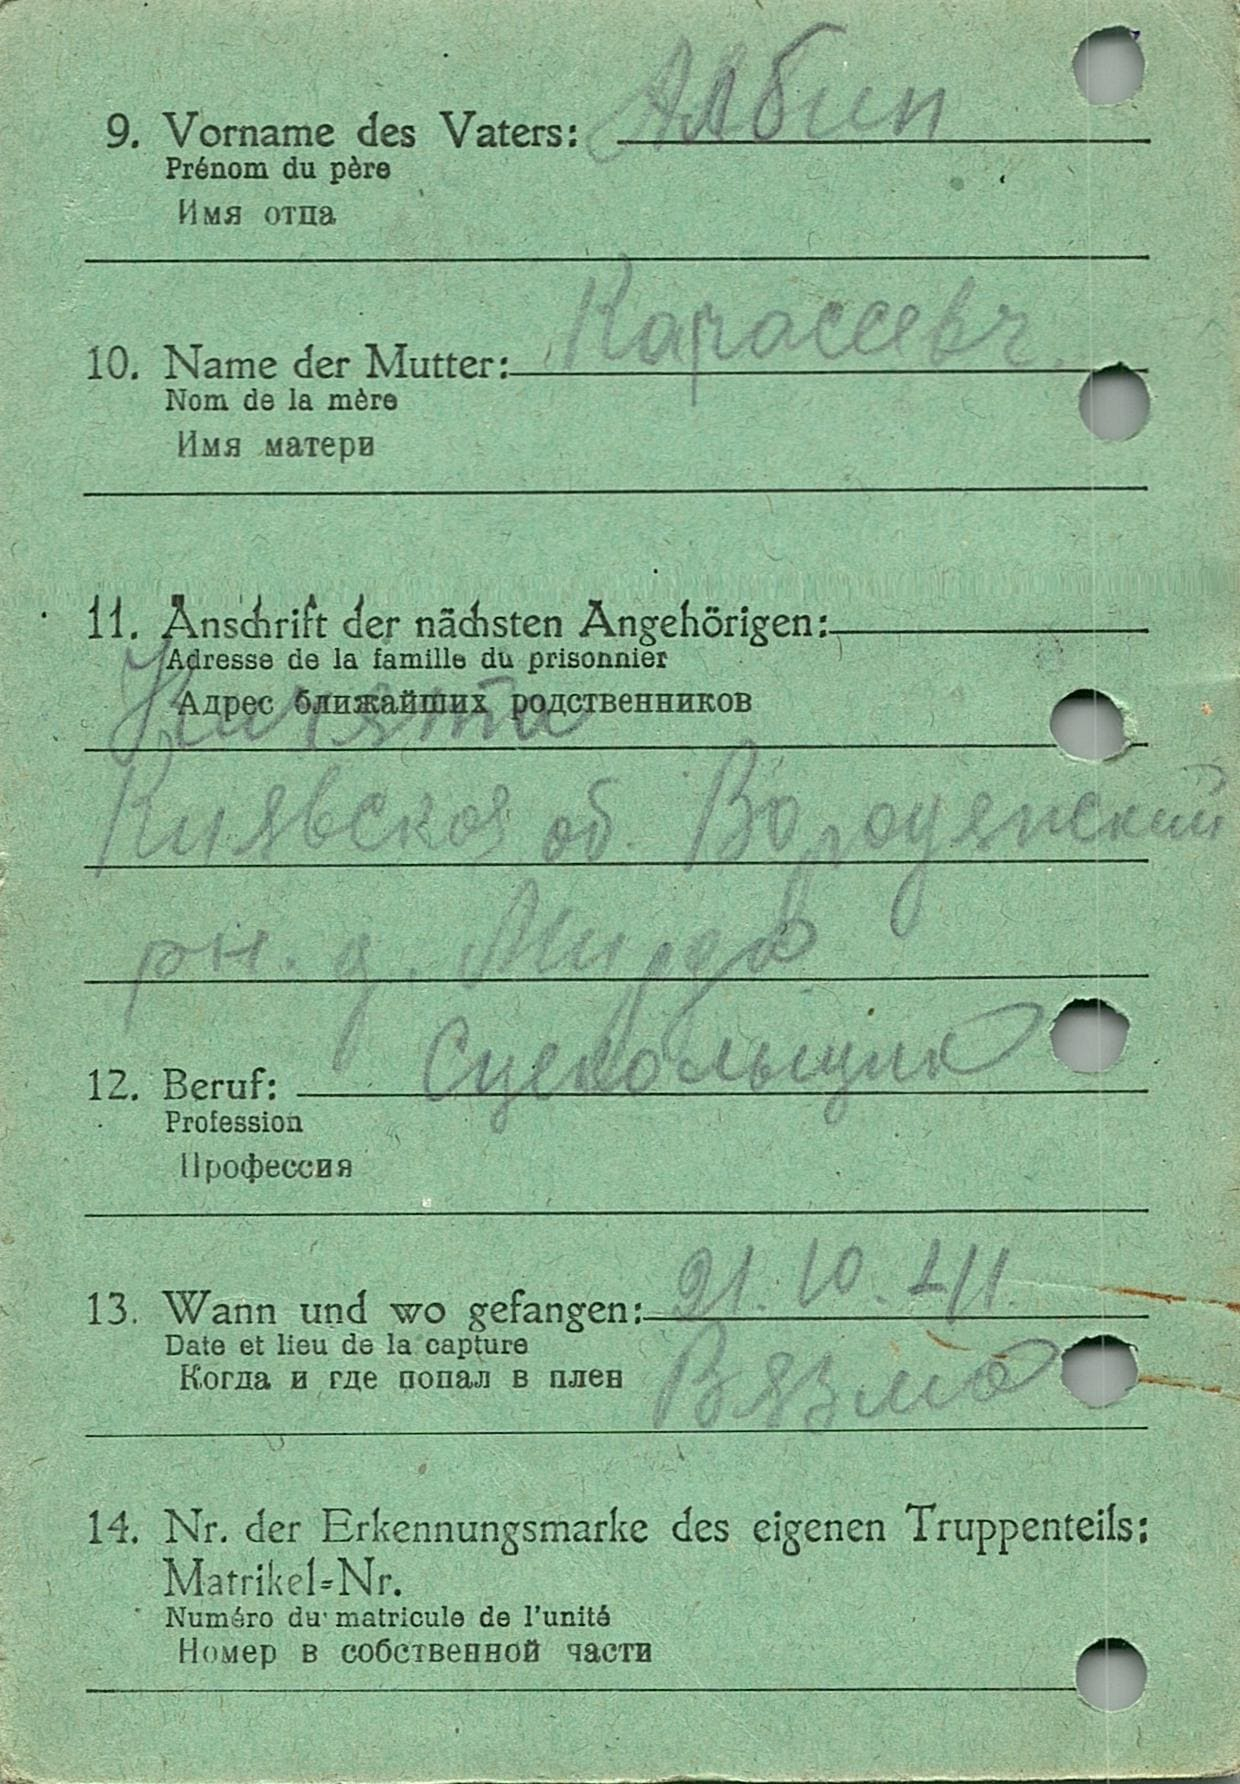 9. Vorname des Vaters: Албин
Prénom du père
Имя отца
10. Name der Mutter: Карассевч.
Nom de la mère
Имя матери
11. Anschrift der nächsten Angehörigen:
Adresse de la famille du prisonnier
Адрес ближайших родственников
Киявская об. Вородянский
рн. д.
12. Beruf:
Profession
Профессия
13. Wann und wo gefangen: 21.10.41.
Date et lieu de la capture
Когда и где попал в плен Вязмо
14. Nr. der Erkennungsmarke des eigenen Truppenteils:
Matrikel-Nr.
Numéro du matricule de l'unité
Номер в собственной части